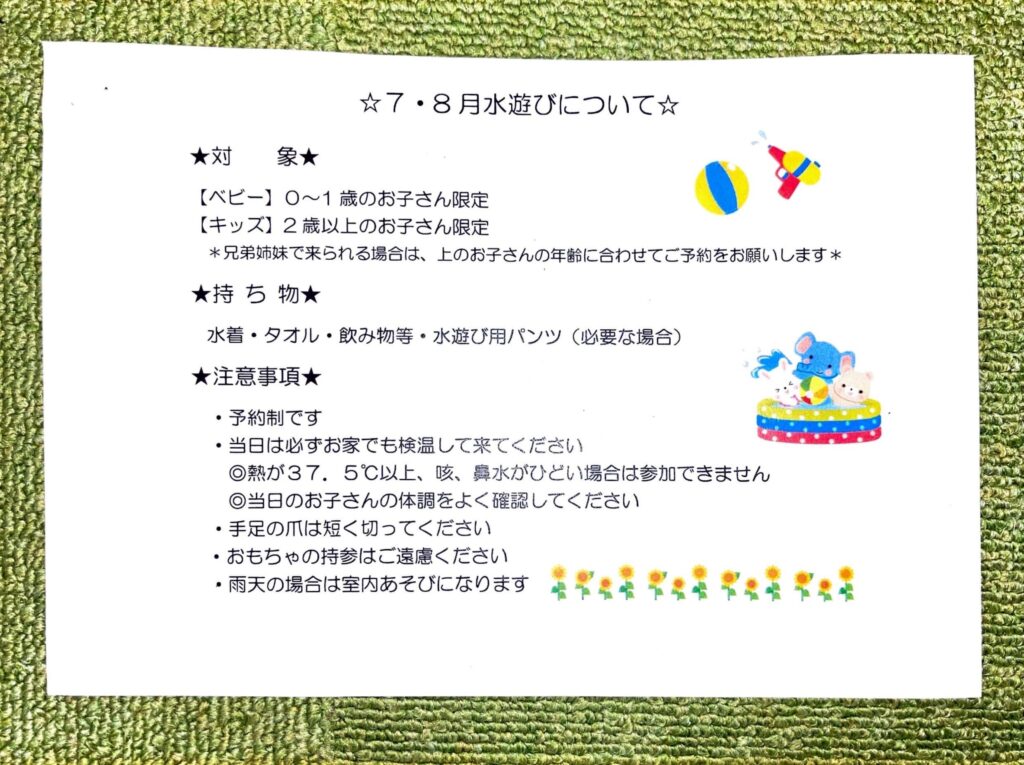 ☆７・８月水遊びについて☆
★対　　象★
【ベビー】０～１歳のお子さん限定
【キッズ】２歳以上のお子さん限定
＊兄弟姉妹で来られる場合は、上のお子さんの年齢に合わせてご予約をお願いします＊
★持 ち 物★
水着・タオル・飲み物等・水遊び用パンツ（必要な場合）
★注意事項★
・予約制です
・当日は必ずお家でも検温して来てください
◎熱が３７．５℃以上、咳、鼻水がひどい場合は参加できません
◎当日のお子さんの体調をよく確認してください
・手足の爪は短く切ってください
・おもちゃの持参はご遠慮ください
・雨天の場合は室内あそびになります